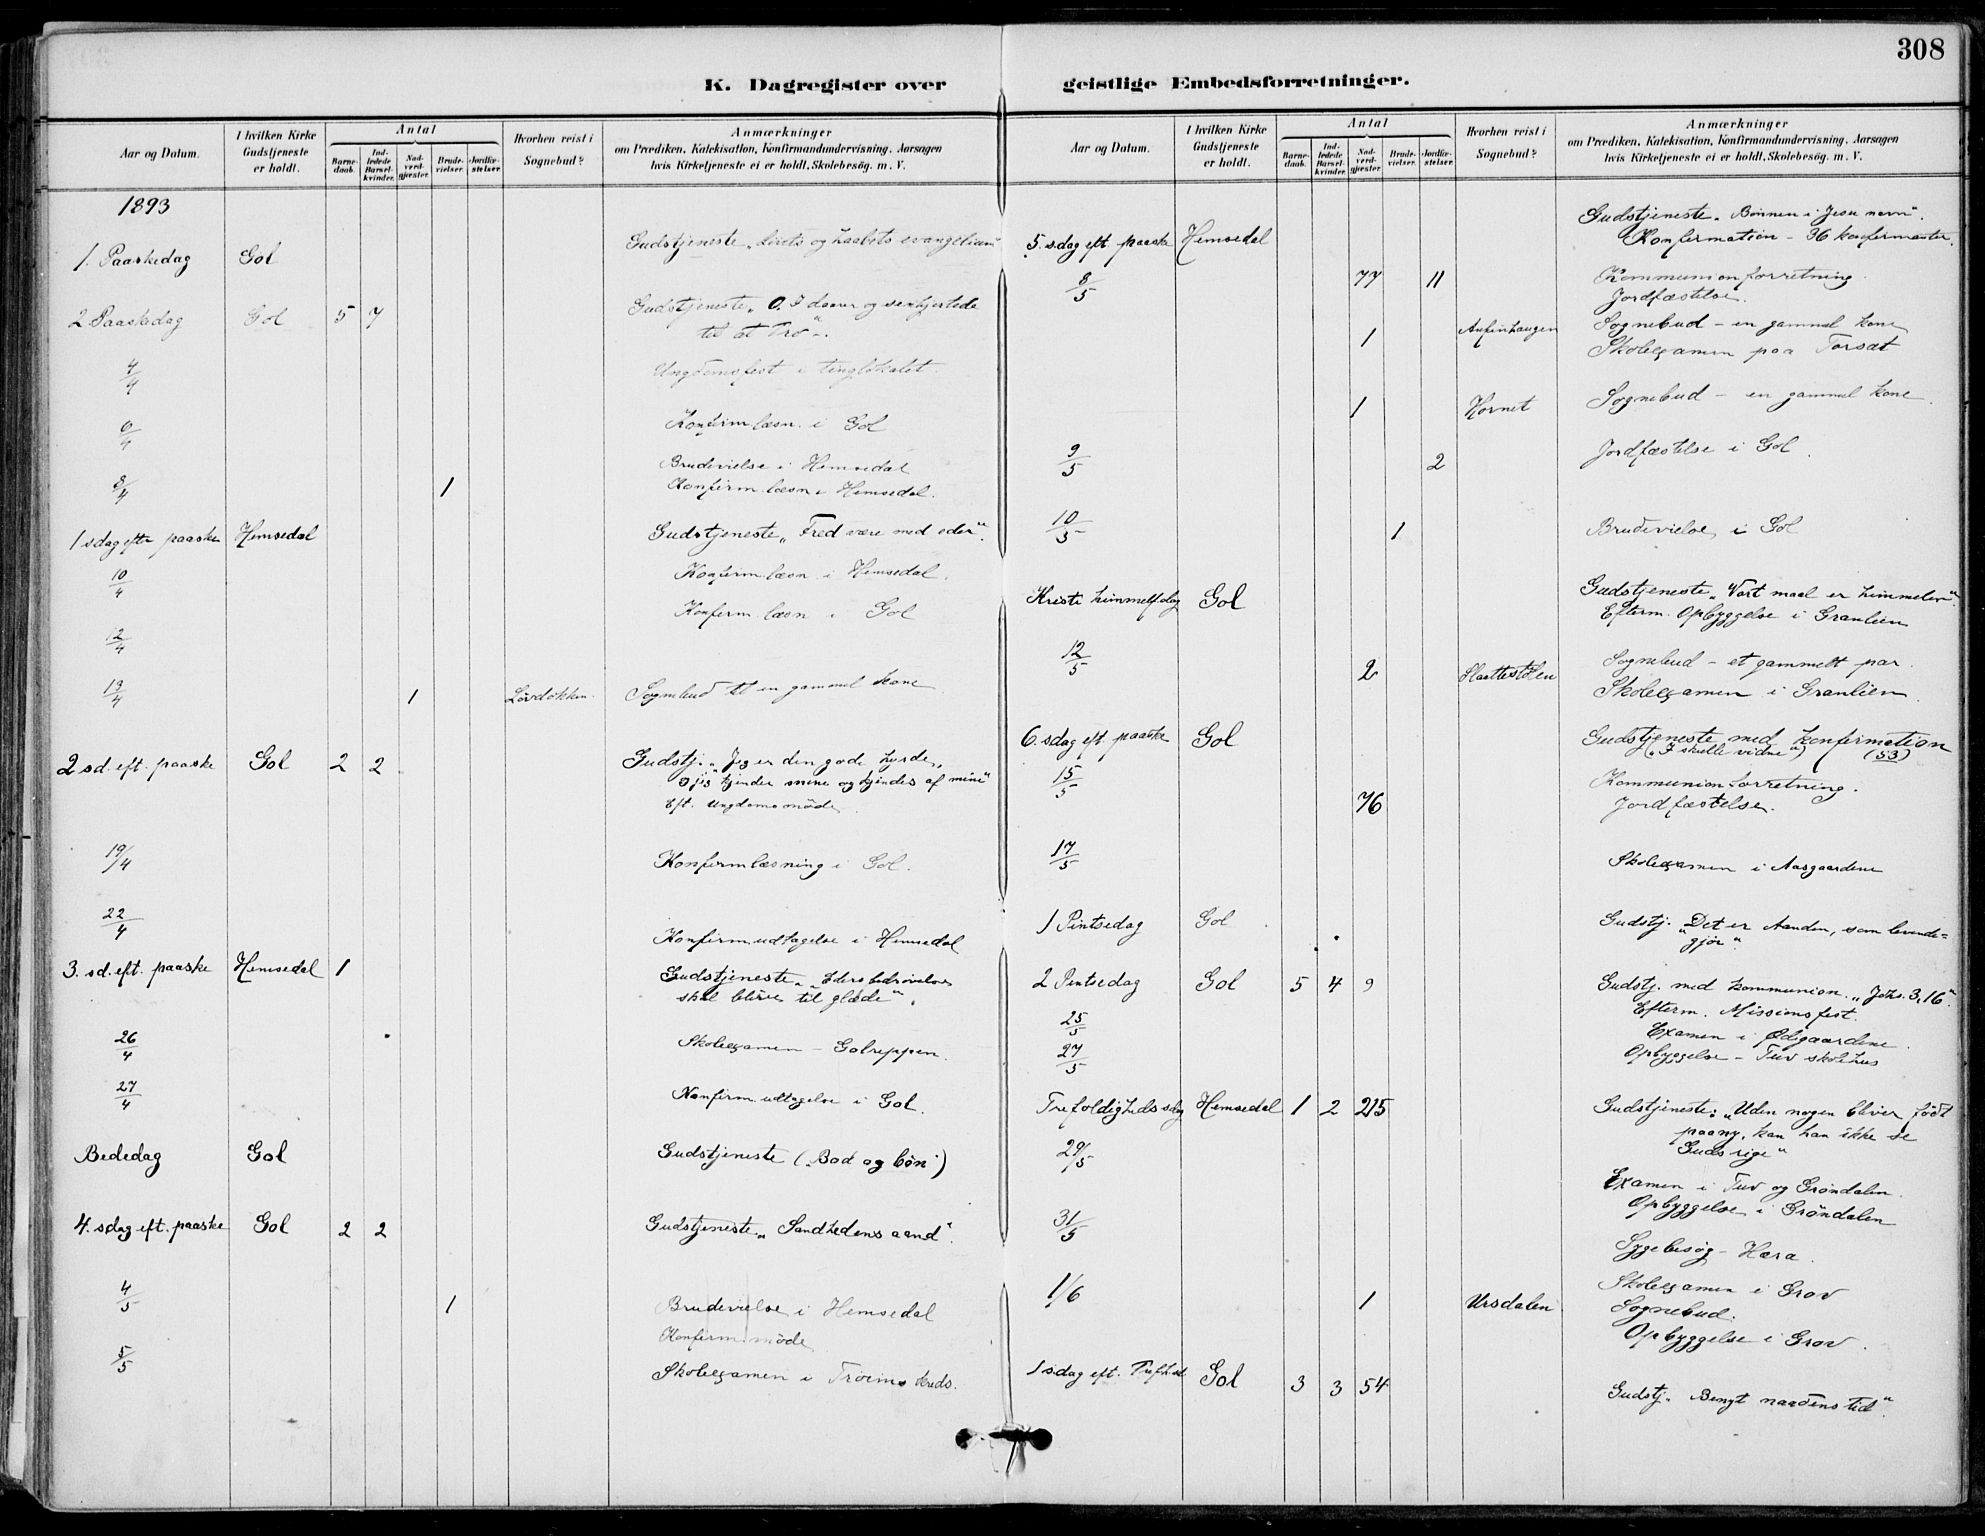 308
K. Dagregister over geistlige Embedsforretninger.
Aar og Datum.
I hvilken Kirke Gudstjeneste er holdt.
Antal
Barne-daab.
Ind-ledede Barsel-kvinder.
Nad-verd-gjæster.
Brude-vielser.
Jordfæ-stelser.
Hvorhen reist i Sognebud?
Anmærkninger
om Prædiken, Katekisation, Konfirmandundervisning, Aarsagen
hvis Kirketjeneste ei er holdt, Skolebesøg. m. V.
1893
1. Paaskedag Gol Gudstjeneste „Livets og haabets evangelium"
2 Paaskedag Gol 5 7 Gudstjeneste „O, I daarer og senhjertede
til at tro".
4/4 Ungdomsfest i tinglokalet.
6/4 Konfirm.læsn. i Gol
Brudevielse i Hemsedal
8/4 1 Konfirm.læsn i Hemsedal.
1 sdag efter paaske Hemsedal Gudstjeneste „Fred være med eder".
10/4 Konfirm.læsn. i Hemsedal.
12/4 Konfirm.læsn i Gol
13/4 1 Lördökken. Sognebud til en gammel kone
2 sd. eft. paaske Gol 2 2 Gudstj. „Jeg er den gode hyrde,
og jeg kjender mine og kjendes af mine"
Eft. Ungdomsmöde.
19/4 Konfirmlæsning i Gol.
22/4 Konfirm.udtagelse i Hemsedal
3. sd. eft. paaske Hemsedal 1 Gudstjeneste „Eders bedrövelse
skal blive til glæde".
26/4 Skoleexamen – Golreppen.
27/4 Konfirm.udtagelse i Gol.
Bededag Gol Gudstjeneste („Bod og bön")
4. sdag eft. paaske Gol 2 2 Gudstjeneste „Sandhedens aand".
4/5 1 Brudevielse i Hemsedal
Konfirm.möde
5/5 Skoleexamen i Tröims kreds.
Aar og Datum.
I hvilken Kirke Gudstjeneste er holdt.
Antal
Barne-daab.
Ind-ledede Barsel-kvinder.
Nad-verd-gjæster.
Brude-vielser.
Jordfæ-stelser.
Hvorhen reist i Sognebud?
Anmærkninger
om Prædiken, Katekisation, Konfirmandundervisning, Aarsagen
hvis Kirketjeneste ei er holdt, Skolebesøg. m. V.
5. sdag eft. paaske Hemsedal Gudstjeneste „Bönnen i Jesu navn".
Konfirmation – 36 konfirmanter.
8/5 77 11 Kommunionforretning.
Jordfæstelse.
1 Sognebud – en gammel kone
Skoleexamen paa Torsæt
1 Kornet Sognebud – en gammel kone.
9/5 2 Jordfæstelse i Gol.
10/5 1 Brudevielse i Gol
Kristi himmelf.dag Gol Gudstjeneste „Vort maal er himmelen".
Efterm. Opbyggelse i Granlien
12/5 2 Slaattestölen Sognebud – et gammelt par.
Skoleexamen i Granlien.
6. sdag eft. paaske Gol Gudstjeneste med konfirmation
(„I skulle vidne") (53)
15/5 76 Kommunionforretning.
Jordfæstelse.
17/5 Skoleexamen i Aasgaardene
1 Pintsedag Gol Gudstj. „Det er Aanden, som levende=
gjör"
2 Pintsedag Gol 5 4 9 Gudstj. med kommunion. „Johs. 3,16".
Efterm. Missionsfest.
25/5 Examen i Ødegaardene.
27/5 Opbyggelse – Tuv skolehus
Trefoldigheds sdag Hemsedal 1 2 215 Gudstjeneste: „Uden nogen bliver födt
paany, kan han ikke se
Guds rige"
29/5 Examen i Tuv og Gröndalen.
Opbyggelse i Gröndalen
31/5 Sygebesög – Hæra.
1/6 Skoleexamen i Grov
1 Ursdalen Sognebud.
Opbyggelse i Grov.
1 sdag eft. Trefh. Gol 3 3 54 Gudstj. „Benyt naadens tid".